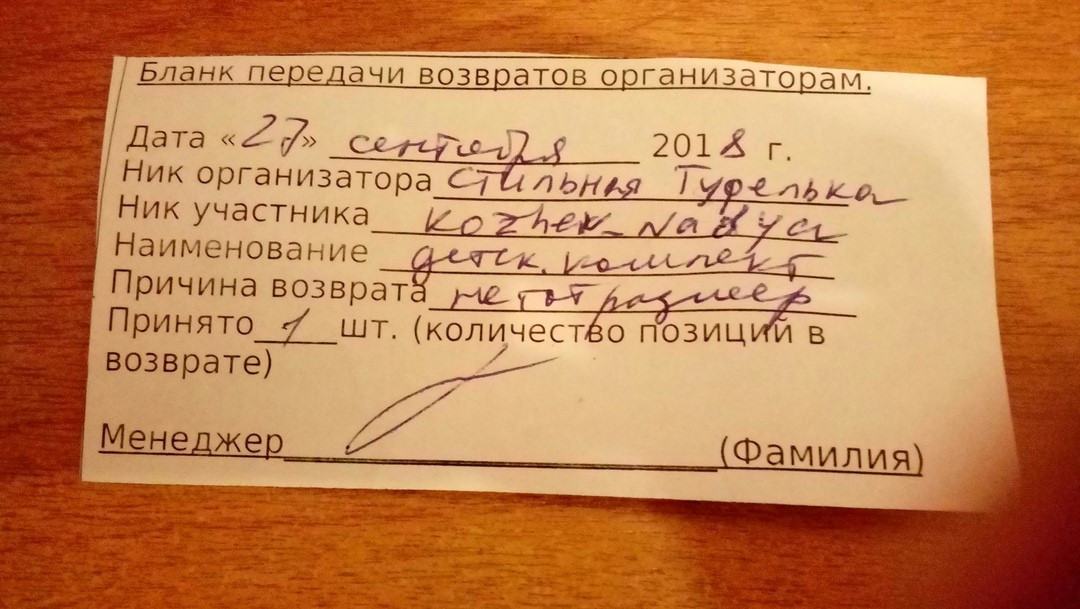 Бланк передачи возвратов организаторам.
Дата «27» сентября 2018 г.
Ник организатора Стильная Туфелька
Ник участника kozhek_Nadya
Наименование детск. комплект
Причина возврата не тот размер
Принято 1 шт. (количество позиций в
возврате)
Менеджер (Фамилия)